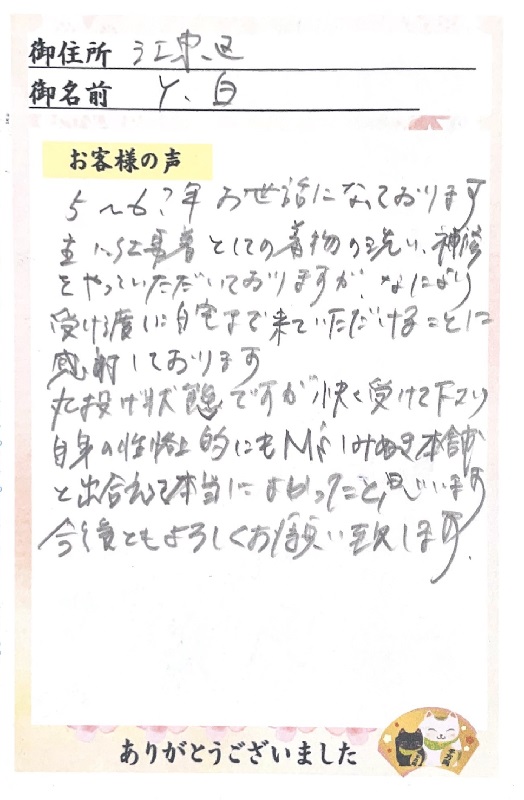 御住所 江東区
御名前 Y、白
お客様の声
5〜6?年お世話になっております
主に仕事着としての着物の洗い、補修
をやっていただいておりますが、なにより
受ける度に自宅まで来ていただけることに
感謝しております
丸投げ状態ですが快く受けて下さり
自身の性格上的にも
と出会えて本当によかったこと、思います
今後ともよろしくお願い致します。
ありがとうございました